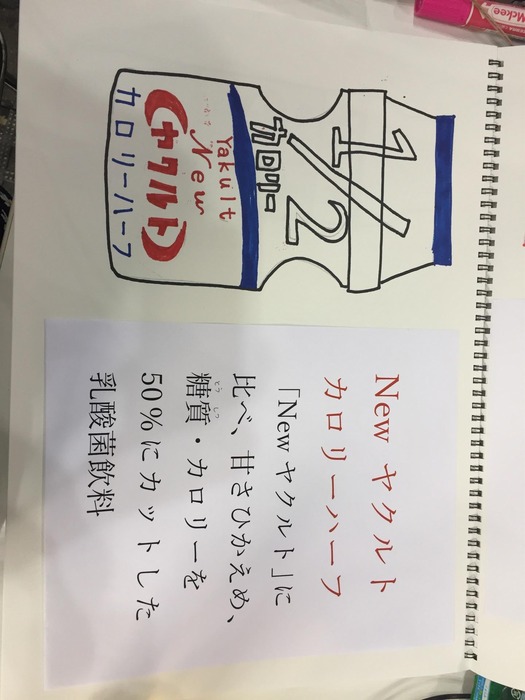 1/2
カロリー
Yakult
New
ヤクルト
カロリーハーフ
New ヤクルト
カロリーハーフ
「New ヤクルト」に
比べ、甘さひかえめ、
とう しつ
糖質・カロリーを
50%にカットした
乳酸菌飲料
Mckee